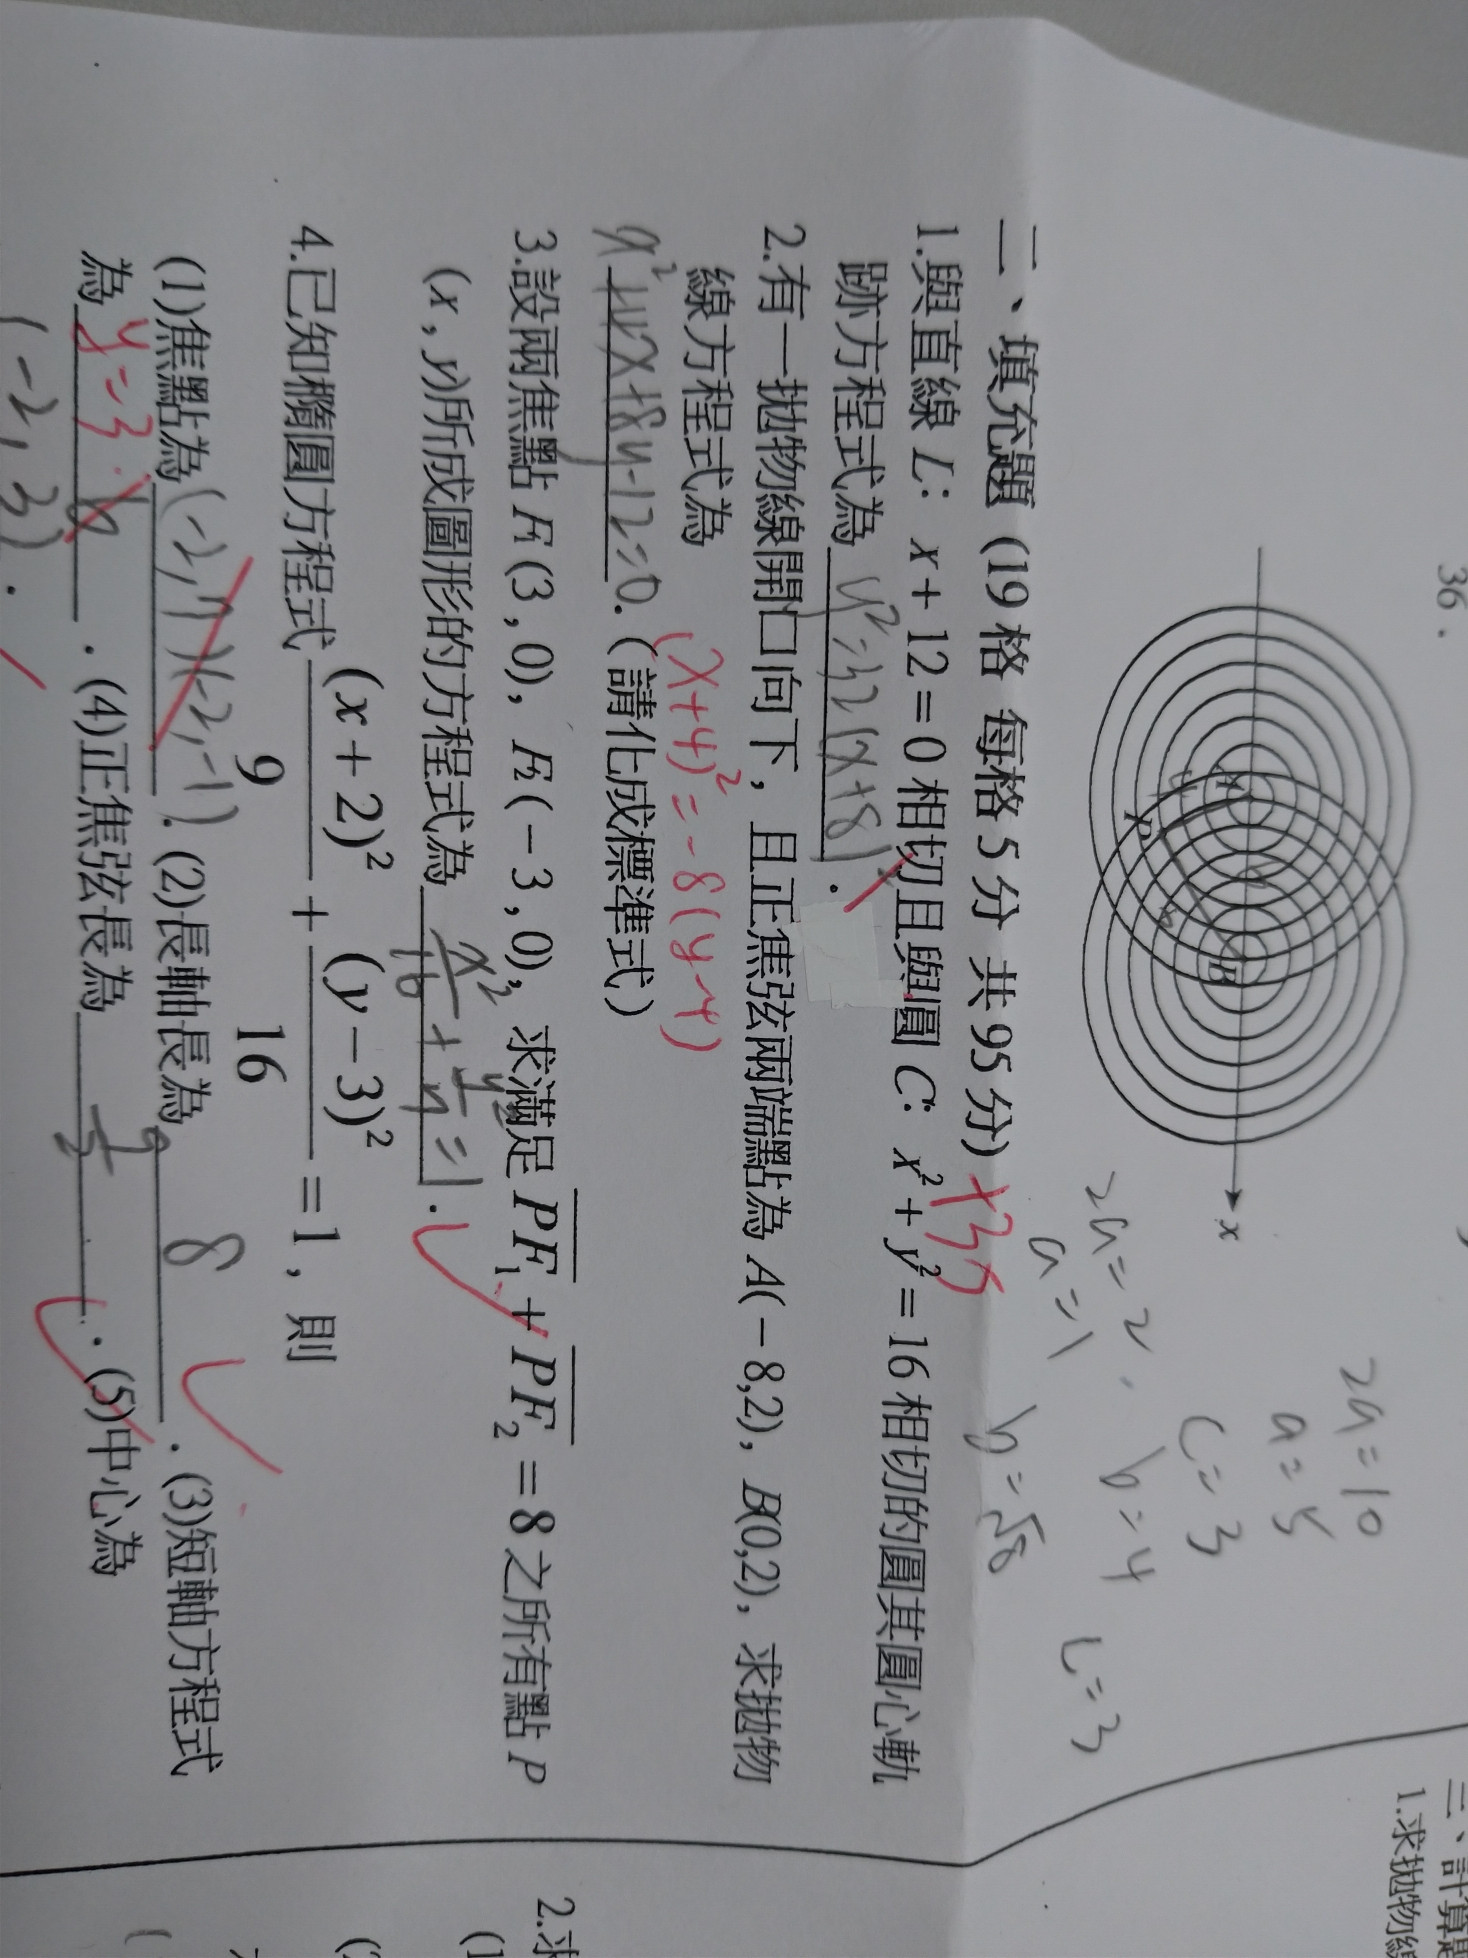 36.
x
B
2a=10
a=5
c=3
b=4
2a=2
a=1
b=√8
c=3
二、填充題 (19格 每格5分 共95分)
1.與直線 L: x+12=0 相切且與圓 C: x²+y²=16 相切的圓其圓心軌
跡方程式為 y²=32(x+8).
2.有一拋物線開口向下，且正焦弦兩端點為 A(−8,2), B(0,2), 求拋物
線方程式為
(x+4)²=-8(y-4)
+8y-12=0. (請化成標準式)
3.設兩焦點 F₁(3,0), F₂(−3,0), 求滿足 PF₁+PF₂=8 之所有點 P
(x,y)所成圖形的方程式為 x²/16+y²/7=1.
4.已知橢圓方程式 (x+2)²/9+(y−3)²/16=1, 則
(1)焦點為 (-2,7)(-2,-1). (2)長軸長為 8. (3)短軸方程式
為 y=3. (4)正焦弦長為 9/2. (5)中心為
(-2,3).
三、計算題
1.求拋物線
2.求
(1
(2